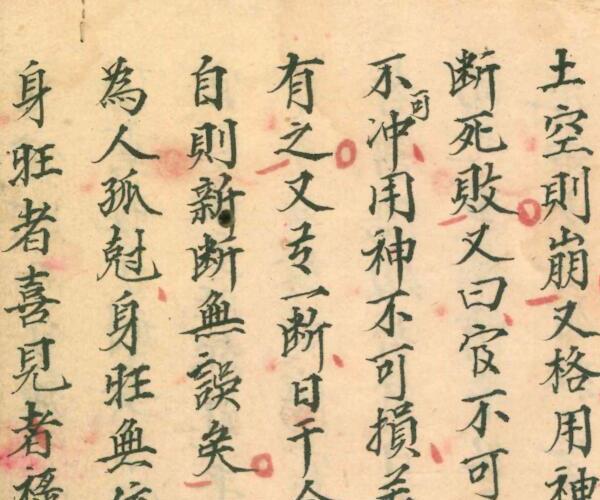 土空則崩又格用神
断死敗又曰官不可
不可冲用神不可損
有之又云一断日干
自則新断無誤矣
為人孤尅身旺無
身旺者喜見者